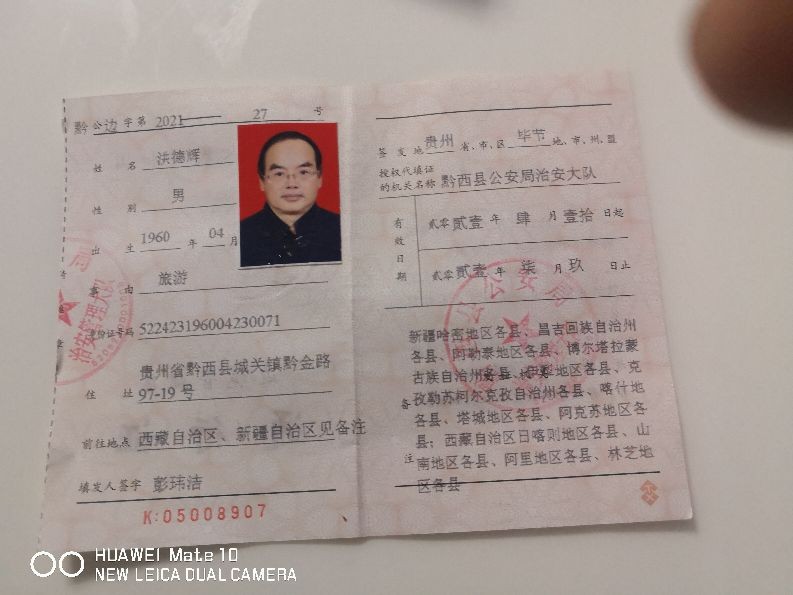 黔公边字第 2021 27 号
姓名 洪德辉
性别 男
出生 1960 年 04 月
事由 旅游
身份证号码 522423196004230071
贵州省黔西县城关镇黔金路
住址 97-19 号
前往地点 西藏自治区、新疆自治区见备注
填发人签字 彭玮洁
K:05008907
治安管理大队
签发地 贵州 省、市、区 毕节 地、市、州、盟
授权代填证
的机关名称 黔西县公安局治安大队
有效日期
贰零贰壹 年 肆 月 壹拾 日起
贰零贰壹 年 柒 月 玖 日止
公安局
备注
新疆哈密地区各县、昌吉回族自治州
各县、阿勒泰地区各县、博尔塔拉蒙
古族自治州各县、伊犁地区各县、克
孜勒苏柯尔克孜自治州各县、喀什地
各县、塔城地区各县、阿克苏地区各
县；西藏自治区日喀则地区各县、山
南地区各县、阿里地区各县、林芝地
区各县
HUAWEI Mate 10
NEW LEICA DUAL CAMERA